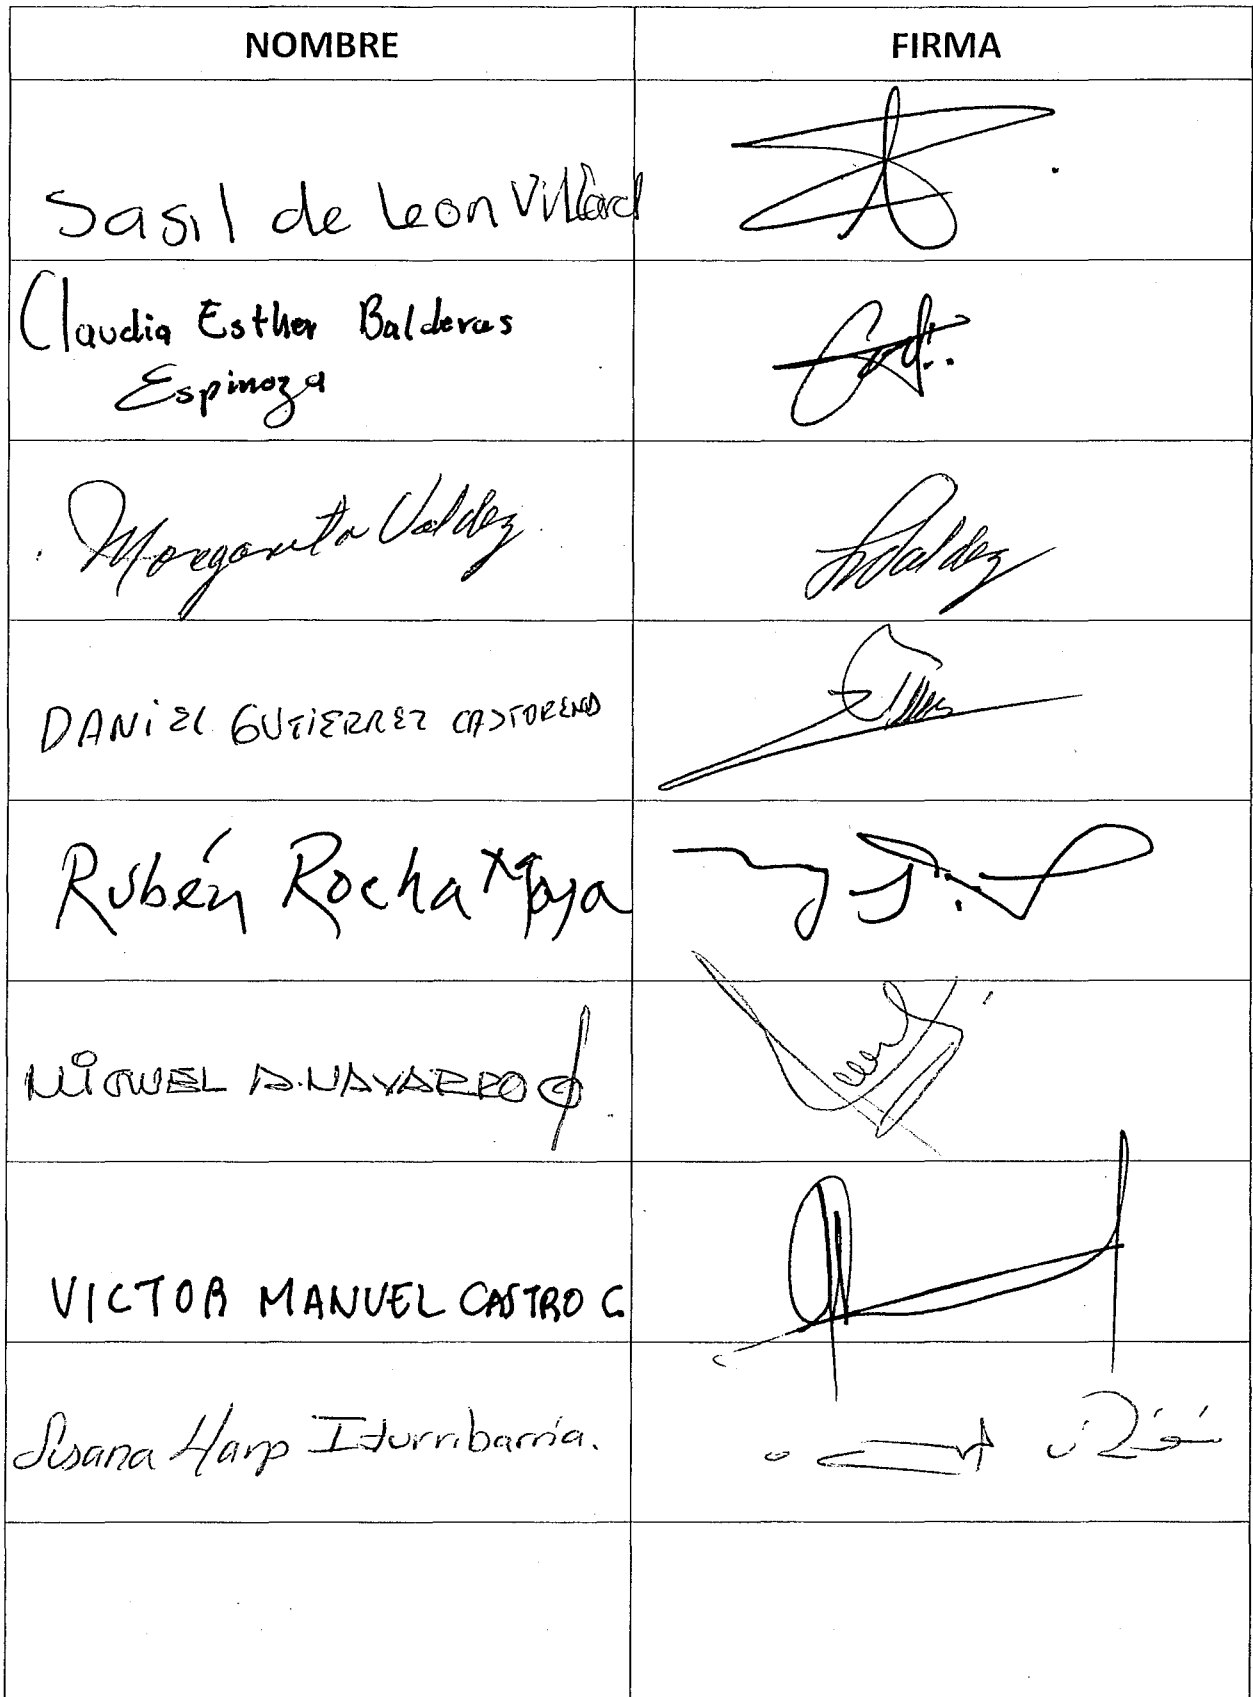 NOMBRE
FIRMA
Sasil de Leon Villard
Claudia Esther Balderas
Espinoza
Margarita Valdez
Valdez
DANiEL GUTiERREZ CASTORENA
Rubén Rocha Moya
MiGUEL A. NAVARRO Q.
VICTOR MANUEL CASTRO C.
Susana Harp Iturribarría.